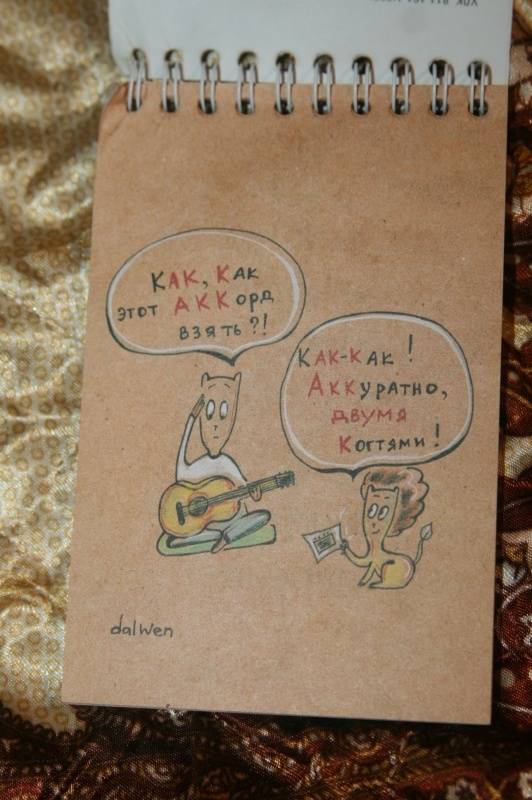 КАК, Как
этот АККорд
взять?!
Как-Как!
Аккуратно,
двумя
Когтями!
dalwen